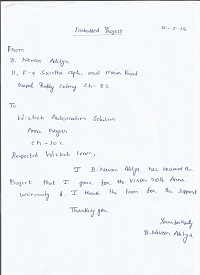 Embedded Project
From
B. Naveen Aditya
11, F-4 Swetha apts, east main Road
Reddy Colony Ch-82
To
Wiztech Automation Solution
Anna Nagar
Ch-102
Respected Wiztech team,
I B. Naveen Aditya has received the
Project that I gave for the Vision 2014 Anna
university. I thank the team for the support
Thanking you
Yours faithfully
B. Naveen Aditya